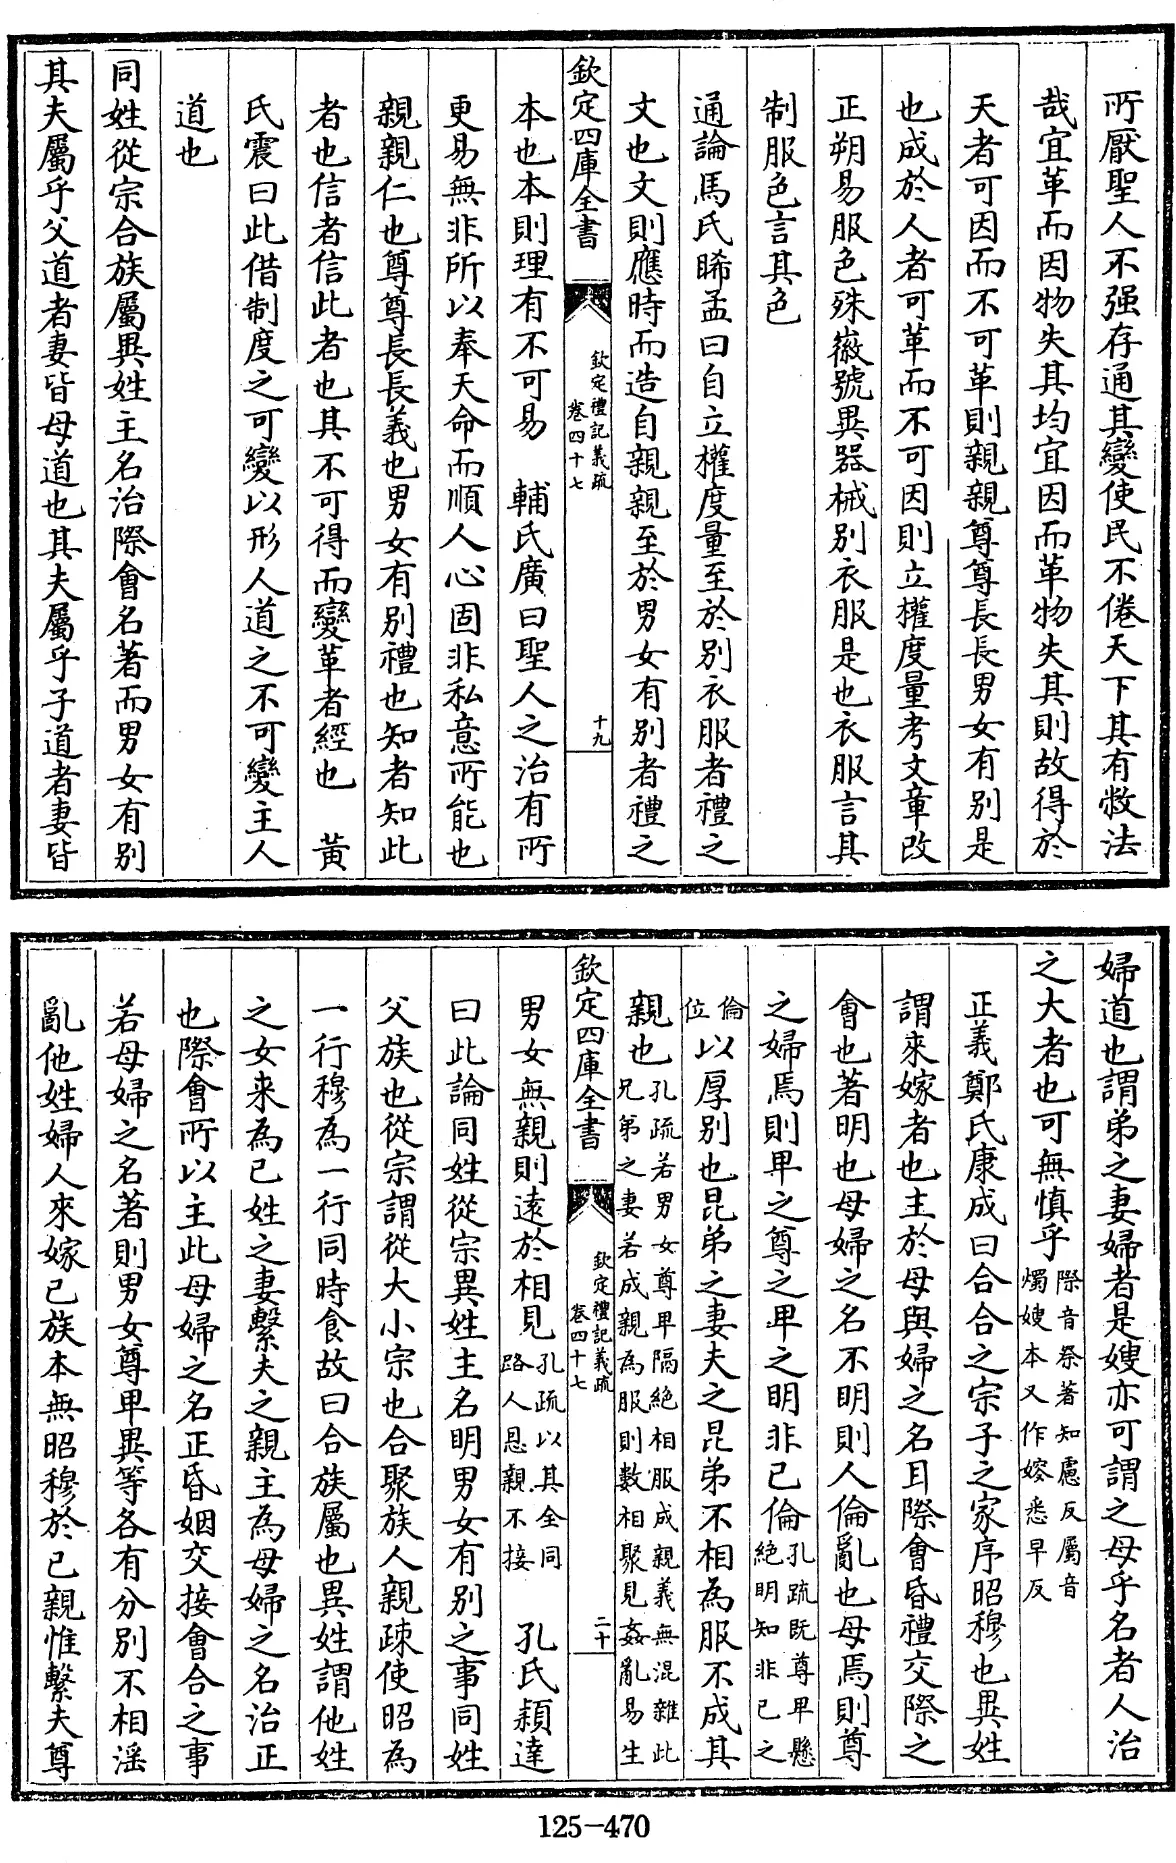 所厭聖人不强存通其變使民不倦天下其有敝法
哉宜革而因物失其均宜因而革物失其則故得於
天者可因而不可革則親親尊尊長長男女有別是
也成於人者可革而不可因則立權度量考文章改
正朔易服色殊徽號異器械別衣服是也衣服言其
制服色言其色
通論馬氏睎孟曰自立權度量至於別衣服者禮之
文也文則應時而造自親親至於男女有別者禮之
欽定四庫全書
欽定禮記義疏
卷四十七
十九
本也本則理有不可易 輔氏廣曰聖人之治有所
更易無非所以奉天命而順人心固非私意所能也
親親仁也尊尊長長義也男女有別禮也知者知此
者也信者信此者也其不可得而變革者經也 黃
氏震曰此借制度之可變以形人道之不可變主人
道也
同姓從宗合族屬異姓主名治際會名著而男女有別
其夫屬乎父道者妻皆母道也其夫屬乎子道者妻皆
婦道也謂弟之妻婦者是嫂亦可謂之母乎名者人治
之大者也可無慎乎際音祭著知慮反屬音
燭嫂本又作㛐悉早反
正義鄭氏康成曰合合之宗子之家序昭穆也異姓
謂來嫁者也主於母與婦之名耳際會昏禮交際之
會也著明也母婦之名不明則人倫亂也母焉則尊
之婦焉則卑之尊之卑之明非己倫孔疏既尊卑懸
絶明知非己之
倫
位以厚別也昆弟之妻夫之昆弟不相為服不成其
親也孔疏若男女尊卑隔絶相服成親義無混雜此
兄弟之妻若成親為服則數相聚見姦亂易生
欽定四庫全書
欽定禮記義疏
卷四十七
二十
男女無親則遠於相見孔疏以其全同
路人恩親不接 孔氏頴達
曰此論同姓從宗異姓主名明男女有別之事同姓
父族也從宗謂從大小宗也合聚族人親疎使昭為
一行穆為一行同時食故曰合族屬也異姓謂他姓
之女来為已姓之妻繫夫之親主為母婦之名治正
也際會所以主此母婦之名正昏姻交接會合之事
若母婦之名著則男女尊卑異等各有分別不相淫
亂他姓婦人來嫁已族本無昭穆於已親惟繫夫尊
125-470